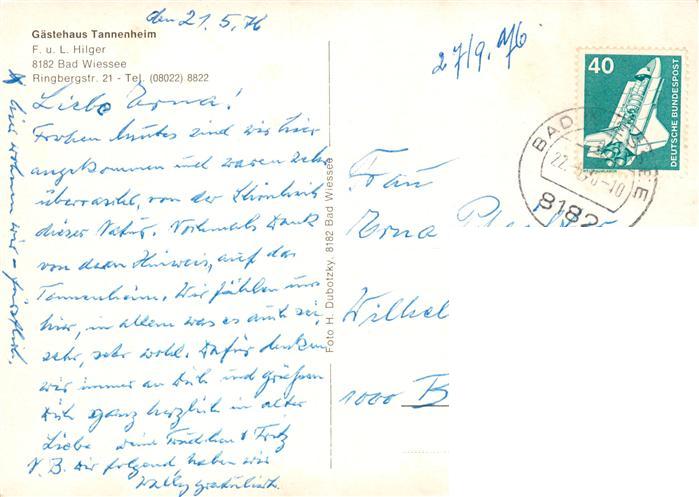 den 21.5.76
Gästehaus Tannenheim
F. u. L. Hilger
8182 Bad Wiessee
Ringbergstr. 21 - Tel. (08022) 8822
Liebe Erna!
Frohen Mutes sind wir hier
angekommen und waren sehr
überrascht, von der Schönheit
dieser Natur. Nochmals Dank
von dein Hinweis, auf das
Tannenheim. Wir fühlen uns
hier, in allem was es auch sei,
sehr, sehr wohl. Dafür denken
wir immer an Dich und grüßen
Dich ganz herzlich in alter
Liebe deine Trudchen & Fritz
N.B. Dir folgend haben wir
Wally gratuliert.
hier wohnen wir - fürstlich.
Foto H. Dubotzky, 8182 Bad Wiessee
27/9. 76
40
DEUTSCHE BUNDESPOST
BAD
EE
8182
Frau
Erna
Wilhel
1000 B